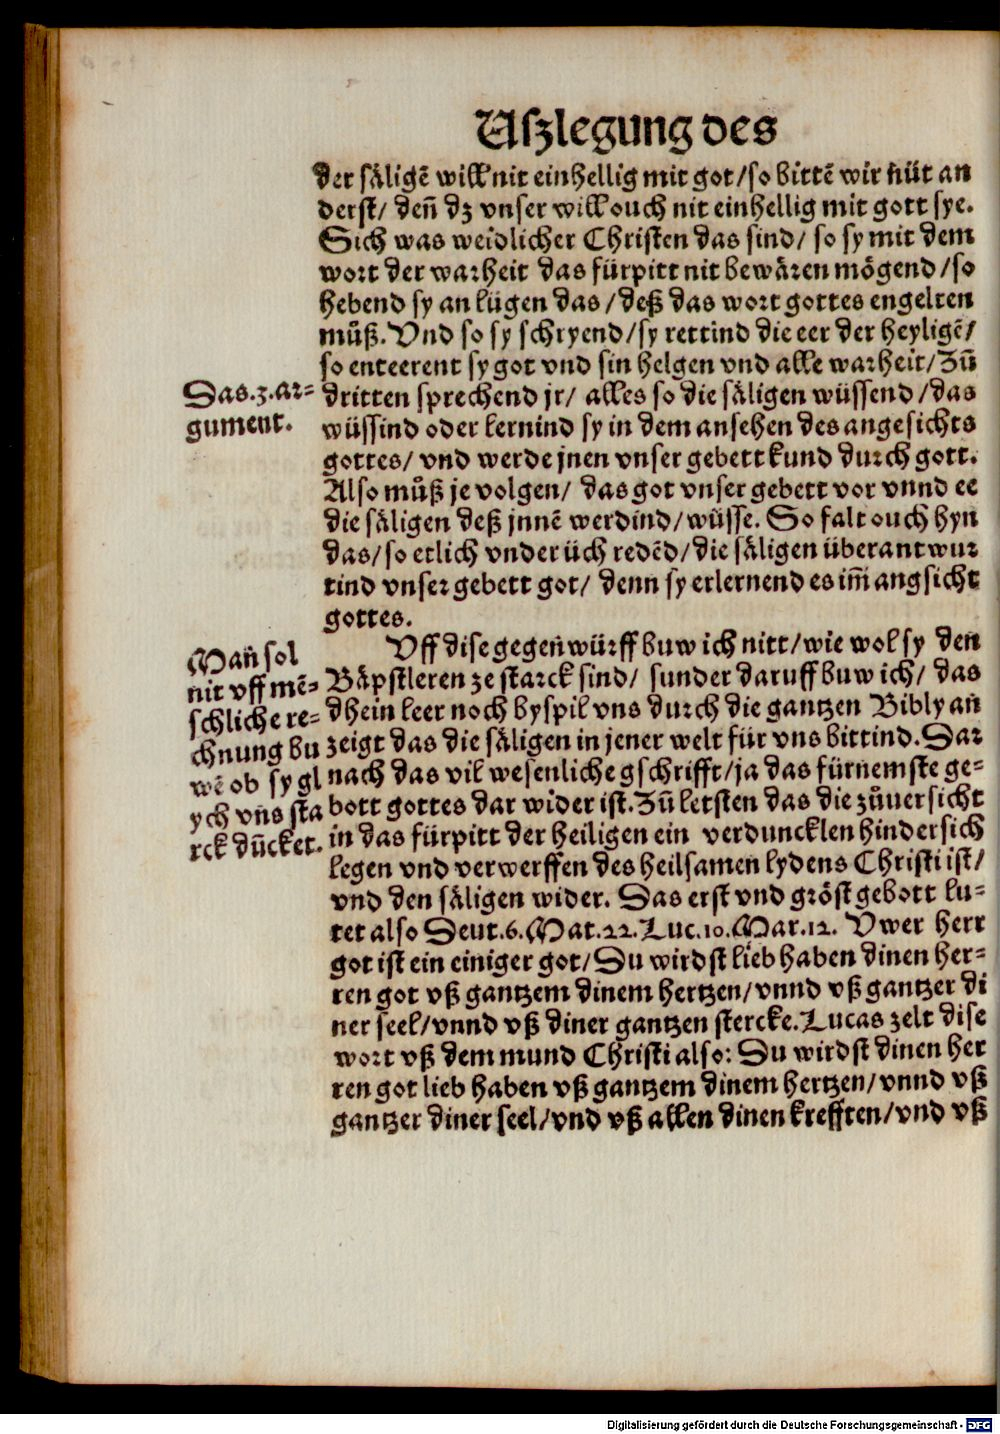 Uſzlegung des
der säligē will nit einhellig mit got/so bittē wir nüt an
derst/ deñ dz vnser will ouch nit einhellig mit gott sye.
Sich was weidlicher Christen das sind/ so sy mit dem
wort der warheit das fürpitt nit bewären mögend/so
hebend sy an lügen das/deß das wort gottes engelten
můß. Vnd so sy schryend/sy rettind die eer der heyligē/
so enteerent sy got vnd sin helgen vnd alle warheit/Zů
Das.3.ar-
gument.
dritten sprechend jr/ alles so die säligen wüssend/das
wüssind oder lernind sy in dem ansehen des angesichts
gottes/ vnd werde jnen vnser gebett kund durch gott.
Also můß je volgen/ das got vnser gebett vor vnnd ee
die säligen deß jnnē werdind/wüsse. So falt ouch hyn
das/so etlich vnder üch redēd/die säligen überantwur
tind vnser gebett got/ denn sy erlernend es im̃ angsicht
gottes.
Mañ sol
nit vff mē-
schliche re-
chnung bu
wē ob sy gl
ych vns sta
rck dücket.
Vff dise gegenwürff buw ich nitt/wie wol sy den
Bäpstleren ze starck sind/ sunder daruff buw ich/ das
dhein leer noch byspil vns durch die gantzen Bibly an
zeigt das die säligen in jener welt für vns bittind. Dar
nach das vil wesenliche gschrifft/ja das fürnemste ge-
bott gottes dar wider ist. Zů letsten das die zůuersicht
in das fürpitt der heiligen ein verduncklen hindersich
legen vnd verwerffen des heilsamen lydens Christi ist/
vnd den säligen wider. Das erst vnd gröst gebott lu-
tet also Deut.6. Mat.22. Luc.10. Mar.12. Vwer herr
got ist ein einiger got/Du wirdst lieb haben dinen her-
ren got vß gantzem dinem hertzen/vnnd vß gantzer di
ner seel/vnnd vß diner gantzen stercke. Lucas zelt dise
wort vß dem mund Christi also: Du wirdst dinen her
ren got lieb haben vß gantzem dinem hertzen/vnnd vß
gantzer diner seel/vnd vß allen dinen krefften/vnd vß
Digitalisierung gefördert durch die Deutsche Forschungsgemeinschaft - DFG